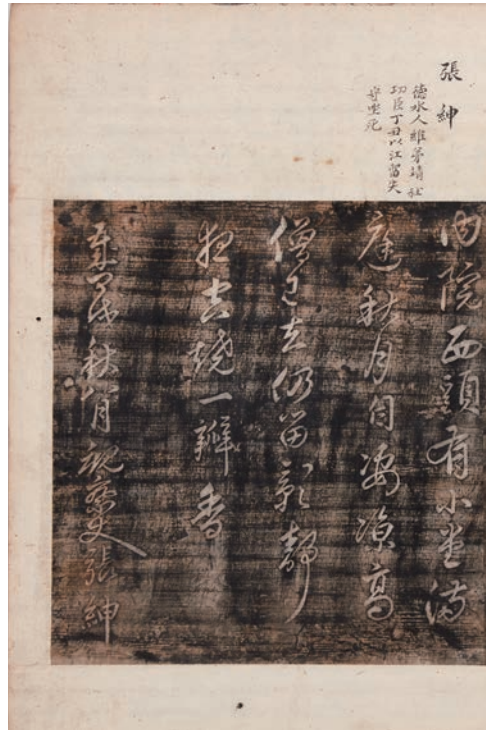 張紳
德水人維弟靖社
功臣丁丑以江留失
守坐死
內院西頭有小堂滿
庭秋月自凄凉高
僧已去仍留影靜
夜燒一瓣香
秋八月觀察使張紳